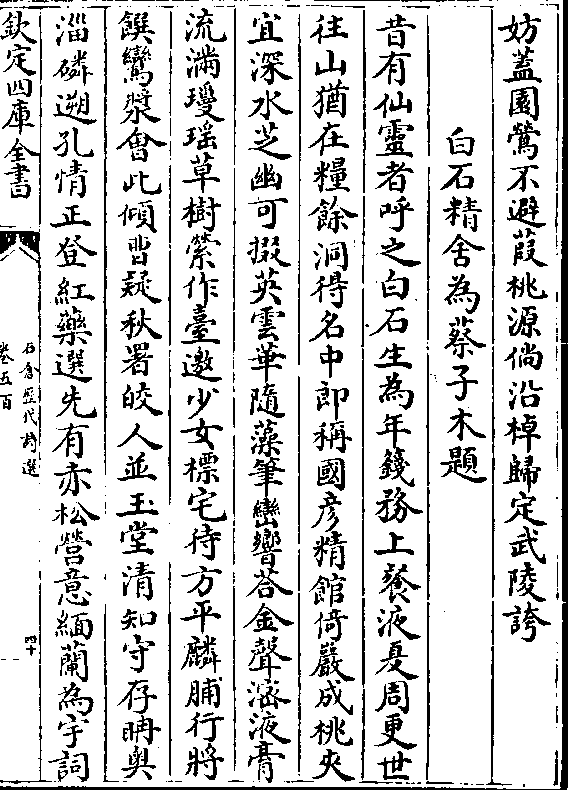 妨蓋園鶯不避葭桃源倘沿棹歸定武陵誇
白石精舍為蔡子木題
昔有仙靈者呼之白石生為年籛務上餐液夏周更世
往山猶在糧餘洞得名中郎稱國彦精館倚巖成桃夾
宜深水芝幽可掇英雲華隨藻筆巒響荅金聲滵液膏
流滿瓊瑶草樹縈作臺邀少女標宅待方平麟脯行將
饌鸞漿會此傾旹疑秋署皎人並玉堂清知守存聃奥
淄磷遡孔情正登紅藥選先有赤松營意緬蘭為宇詞
欽定四庫全書
石倉歷代詩選
卷五百
四十